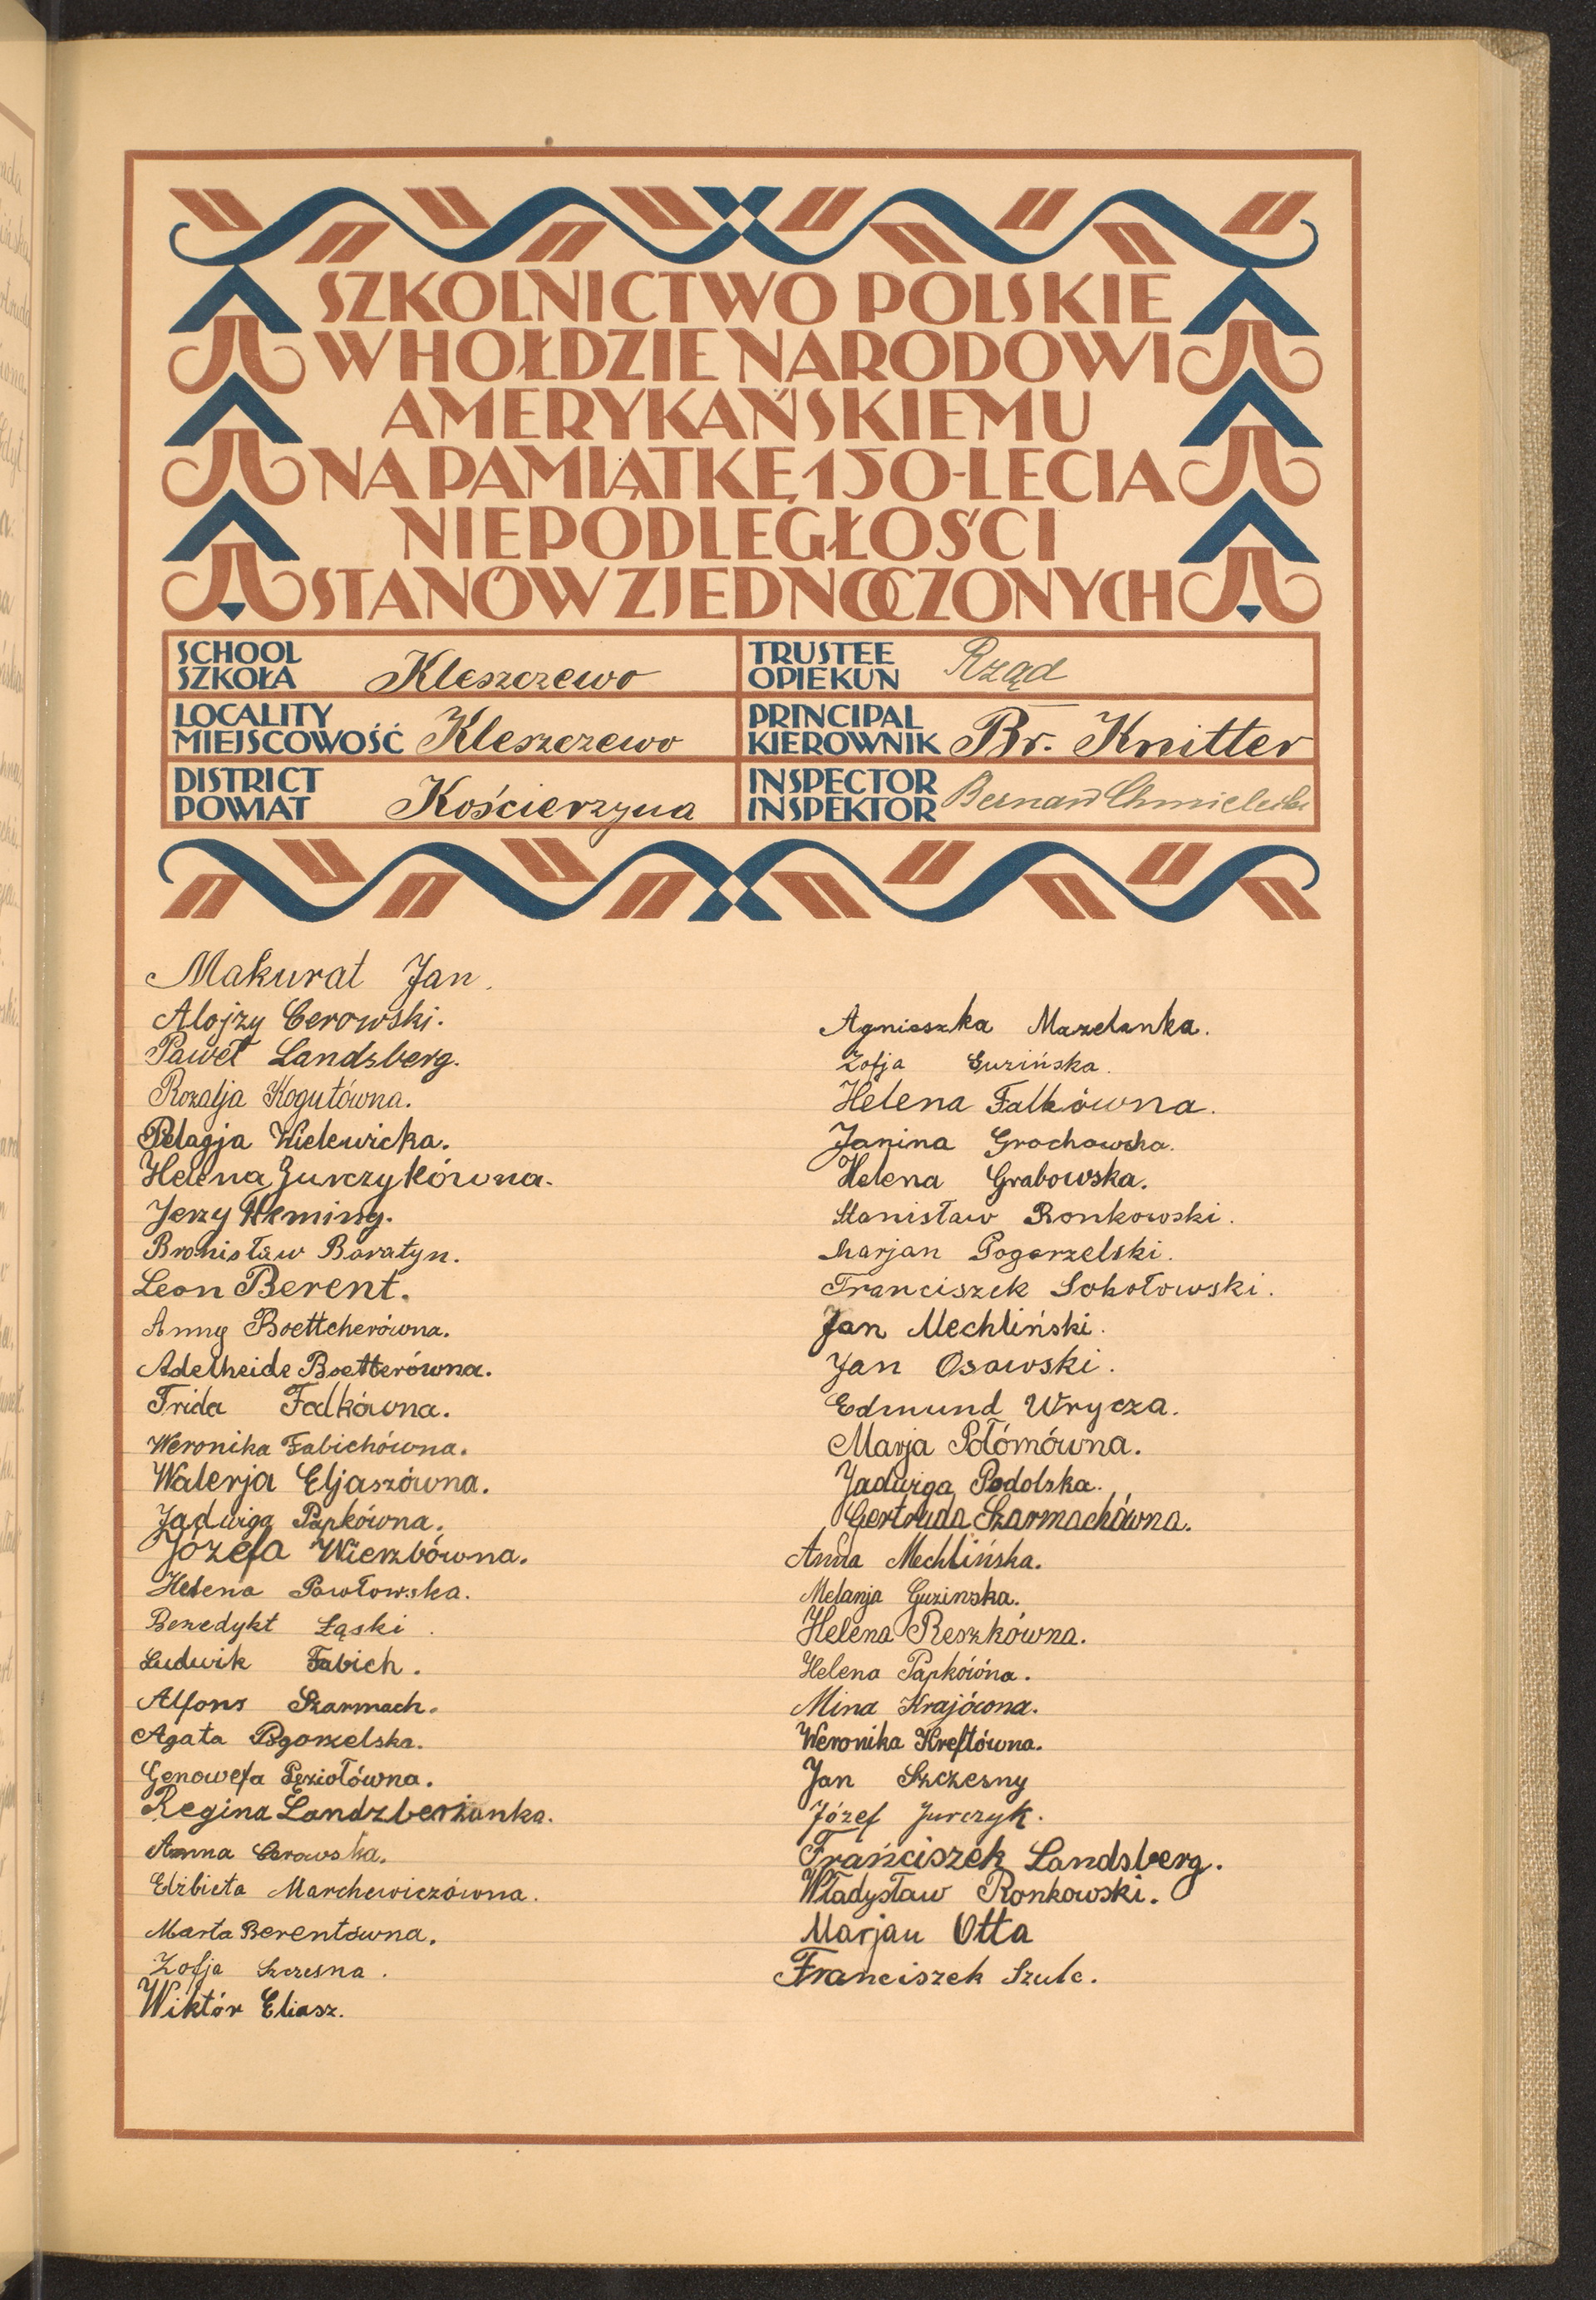 SZKOLNICTWO POLSKIE
W HOŁDZIE NARODOWI
AMERYKAŃSKIEMU
NA PAMIĄTKĘ 150-LECIA
NIEPODLEGŁOŚCI
STANÓW ZJEDNOCZONYCH
SCHOOL
SZKOŁA Kleszczewo
TRUSTEE
OPIEKUN Rząd
LOCALITY
MIEJSCOWOŚĆ Kleszczewo
PRINCIPAL
KIEROWNIK Br. Knitter
DISTRICT
POWIAT Kościerzyna
INSPECTOR
INSPEKTOR Bernard
Makurat Jan.
Alojzy Cerowski.
Paweł Landsberg.
Rozalja Kogutówna.
Pelagja Wielewicka.
Helena Jurczykówna.
Jerzy
Bronisław Baratyn.
Leon Berent.
Anny Boettcherówna.
Adelheide Boetterówna.
Frida Falkówna.
Weronika Fabichówna.
Walerja Eljaszówna.
Jadwiga Papkówna.
Józefa Wierzbówna.
Helena Pawłowska.
Benedykt Łąski.
Ludwik Fabich.
Alfons Szarmach.
Agata
Genowefa Pęziołówna.
Regina Landzberżanka.
Anna Cerowska.
Elżbieta Marchewiczówna.
Marta Berentówna.
Zofja Szczesna.
Wiktór Eliasz.
Agnieszka Mazelanka.
Zofja Guzińska.
Helena Falkówna.
Janina Grochowska.
Helena Grabowska.
Stanisław Ronkowski.
Marjan Pogorzelski.
Franciszek Sokołowski.
Jan Mechliński.
Jan Osowski.
Edmund Wrycza.
Marja Połómówna.
Jadwiga Podolska.
Gertruda Szarmachówna.
Anna Mechlińska.
Melanja Guzinska.
Helena Reszkówna.
Helena Papkówna.
Mina Krajówna.
Weronika Kreftówna.
Jan Szczesny
Józef Jurczyk.
Franciszek Landsberg.
Władysław Ronkowski.
Marjan Otta
Franciszek Szulc.